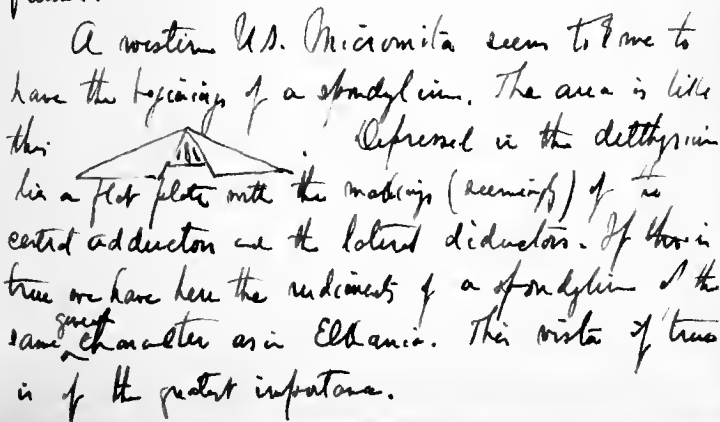 A western U.S. Micromita seems to me to
have the beginings of a spondylium. The area is like
this . Depressed in the delthyrium
lies a flat plate with the markings (seemingly) of the
central adductors and the lateral diductors. If this is
true we have here the rudiments of a spondylium of the
same general character as in Elkania. This vista if true
is of the greatest importance.